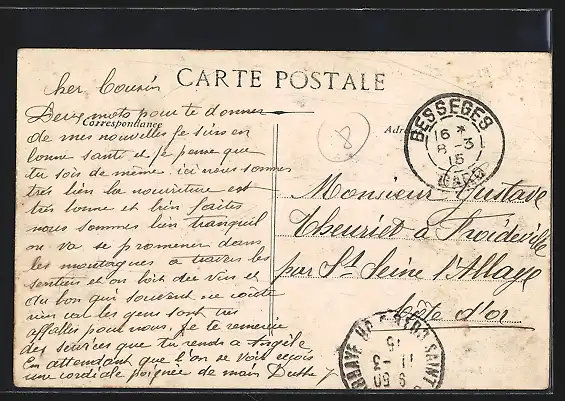 CARTE POSTALE
Correspondance
Adr
8
BESSEGES
16 *
8 - 3
15
GARD
cher Cousin
Deux mots pour te donner
de mes nouvelles je suis en
bonne santé et je pense que
tu sois de même. ici nous sommes
très bien la nourriture est
très bonne et bien faites
nous sommes bien tranquil
on va se promener dans
les montagnes a travers les
sentiers et on boit du vin et
du bon qui souvent ne coûte
rien car les gens sont très
affables pour nous. Je te remercie
des services que tu rends a
En attendant que l'on se voit reçois
une cordiale poignée de main
Monsieur Gustave
Theuriet à Froideville
par St Seine l'Abbaye
Côte d'or
SAINT
11 - 3
15